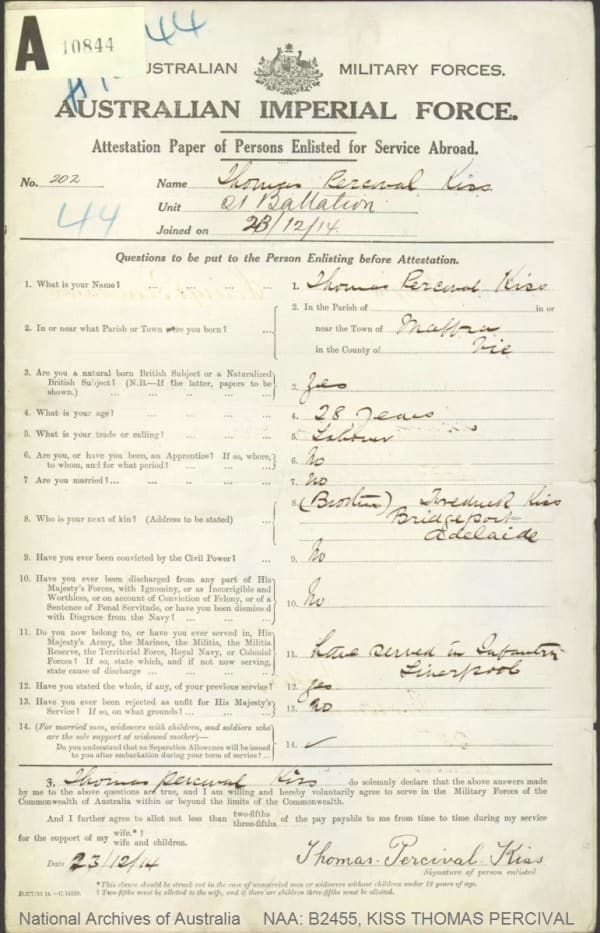 A 10844
44
AUSTRALIAN MILITARY FORCES.
AUSTRALIAN IMPERIAL FORCE.
Attestation Paper of Persons Enlisted for Service Abroad.
No. 202 Name Thomas Percival Kiss
Unit 21 Battalion
44
Joined on 23/12/14.
Questions to be put to the Person Enlisting before Attestation.
1. What is your Name? ... 1. Thomas Percival Kiss
2. In or near what Parish or Town were you born? ... 2. In the Parish of in or
near the Town of Maffra
in the County of Vic
3. Are you a natural born British Subject or a Naturalized
British Subject? (N.B.—If the latter, papers to be
shown.) ... 3. Yes
4. What is your age? ... 4. 28 years
5. What is your trade or calling? ... 5. Labour
6. Are you, or have you been, an Apprentice? If so, where,
to whom, and for what period? ... 6. No
7. Are you married?... 7. No
8. Who is your next of kin? (Address to be stated) ... 8. (Brother) Fredrick Kiss
Bridgeport
Adelaide
9. Have you ever been convicted by the Civil Power? ... 9. No
10. Have you ever been discharged from any part of His
Majesty's Forces, with Ignominy, or as Incorrigible and
Worthless, or on account of Conviction of Felony, or of a
Sentence of Penal Servitude, or have you been dismissed
with Disgrace from the Navy? ... 10. No
11. Do you now belong to, or have you ever served in, His
Majesty's Army, the Marines, the Militia, the Militia
Reserve, the Territorial Force, Royal Navy, or Colonial
Forces? If so, state which, and if not now serving,
state cause of discharge ... 11. have served in Infantry
Liverpool
12. Have you stated the whole, if any, of your previous service? 12. yes
13. Have you ever been rejected as unfit for His Majesty's
Service? If so, on what grounds? ... 13. no
14. (For married men, widowers with children, and soldiers who
are the sole support of widowed mother)—
Do you understand that no Separation Allowance will be issued
to you after embarkation during your term of service? ... 14. ✓
I, Thomas Percival Kiss do solemnly declare that the above answers made
by me to the above questions are true, and I am willing and hereby voluntarily agree to serve in the Military Forces of the
Commonwealth of Australia within or beyond the limits of the Commonwealth.
And I further agree to allot not less than two-fifths three-fifths of the pay payable to me from time to time during my service
for the support of my wife.*†
wife and children.
Date 23/12/14 Thomas. Percival. Kiss
Signature of person enlisted
* This clause should be struck out in the case of unmarried men or widowers without children under 18 years of age.
† Two-fifths must be allotted to the wife, and if there are children three-fifths must be allotted.
National Archives of Australia NAA: B2455, KISS THOMAS PERCIVAL